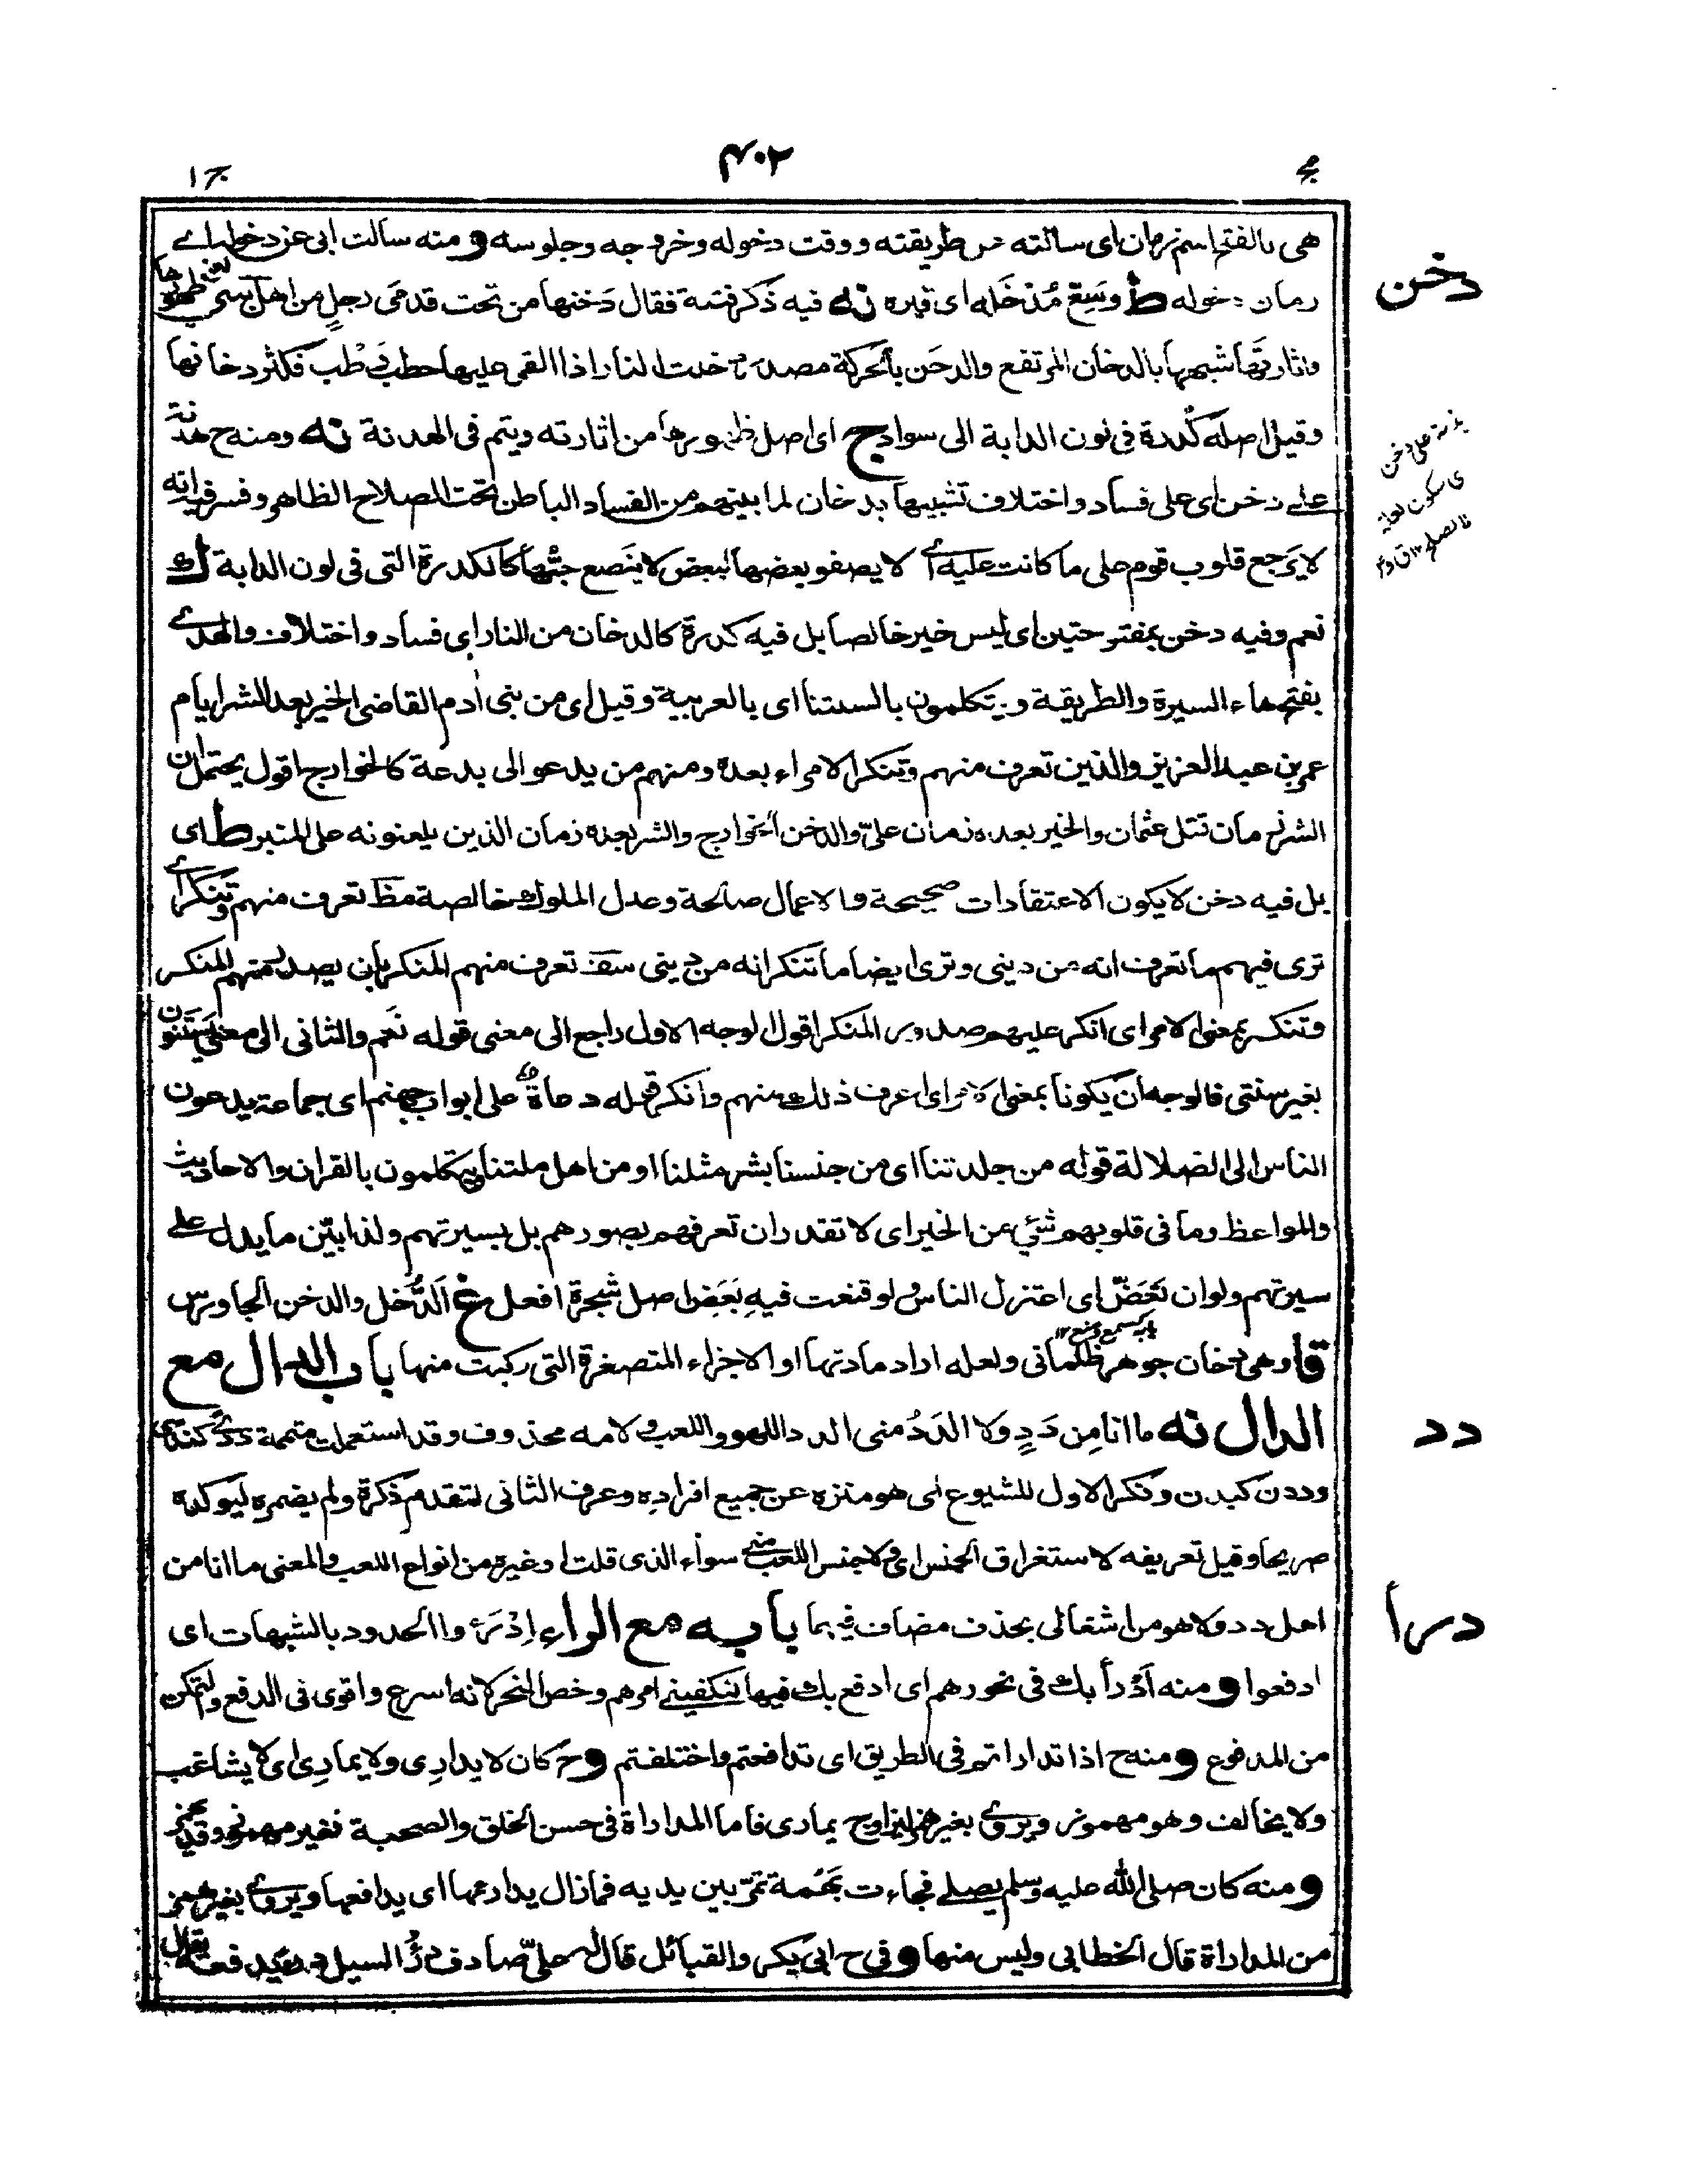 ٤٠٢
هى بالفتح اسم زمان اى سالته عن طريقته ووقت دخوله وخروجه وجلوسه و منه سالت ابى عن دخوله اے
زمان دخوله ط وسّع مُدْخَله اى قبره نه فيه ذكر فتنة فقال دَخَنها من تحت قدمَى رجلٍ من اهل بيتى يعنى ظهورها
دخن
واثارتها شبهها بالدخان المرتفع والدخَن بالحركة مصدر دخنت النار اذا القى عليها حطب رَطْب فكثر دخانها
وقيل اصله كُدرة فى لون الدابة الى سواد ج اى اصل ظهورها من اثارته ويتم فى الهدنة نه ومنه ح هدنة
على دخن اى على فساد واختلاف تشبيها بدخان لما بينهم من الفساد الباطن تحت الصلاح الظاهر وفسر فيه انه
لا يرجع قلوب قوم على ما كانت عليه اے لا يصفو بعضها لبعض لا ينصع حبها كالكدرة التى فى لون الدابة ك
نعم وفيه دخن بمفتوحتين اى ليس خيرا خالصا بل فيه كدرة كالدخان من النار اى فساد واختلاف والهدے
بفتح هاء السيرة والطريقة ويتكلمون بالسنتنا اى بالعربية وقيل اى من بنى ادم القاضى الخير بعد الشر ايام
عمر بن عبد العزيز والذين تعرف منهم وتنكر الامراء بعده ومنهم من يدعو الى بدعة كالخوارج اقول يحتمل ان
الشر زمان قتل عثمان والخير بعده زمان علىّ والدخن الخوارج والشر بعده زمان الذين يلعنونه على المنبر ط اى
بل فيه دخن لا يكون الاعتقادات صحيحة والاعمال صالحة وعدل الملوك خالصة مظ تعرف منهم وتنكر اے
ترى فيهم ما تعرف انه من دينى وترى ايضا ما تنكر انه من دينى تعرف منهم المنكر بان يصدر منهم المنكر
وتنكر بمعنى الامر اى انكر عليهم صدور المنكر اقول الوجه الاول راجع الى معنى قوله نَعم والثانى الى معنى يستنون
بغير سنتى فالوجه ان يكونا بمعنى الامر اى اعرف ذلك منهم وانكر قوله دعاة على ابواب جهنم اى جماعة يدعون
الناس الى الضلالة قوله من جلدتنا اى من جنسنا بشر مثلنا او من اهل ملتنا ويتكلمون بالقران والاحاديث
والمواعظ وما فى قلوبهم شئ من الخير اى لا تقدر ان تعرفهم بصورهم بل بسيرتهم ولذا بيّن ما يدل على
سيرتهم ولو ان تَعَضّ اى اعتزل الناس ولو قنعت فيه بعَضّ اصل شجرة افعل غ الدُّخل والدخن الجاورس
قا وهى دخان جوهر ظلمانى ولعله اراد مادتها او الاجزاء المتصغرة التى ركبت منها باب الدال مع
الدال نه ما انا من دَدٍ ولا الدَدُ منى الدد اللهو واللعب ولامه محذوف وقد استعملت متممة ددى كندى
دد
وددن كبدن ونكر الاول للشيوع اى هو منزه عن جميع افراده وعرف الثانى لتقدم ذكره ولم يضمره ليوكده
صريحا وقيل تعريفه لاستغراق الجنس اى ولا جنس اللعب منى سواء الذى قلت او غيره من انواع اللعب والمعنى ما انا من
اهل دد ولا هو من اشغالى بحذف مضاف فيهما بابه مع الراء اِدْرَءُوا الحدود بالشبهات اى
درأ
ادفعوا و منه اَدْرَأ بك فى نحورهم اى ادفع بك فيها لتكفينى امرهم وخص النحر لانه اسرع واقوى فى الدفع والتمكن
من المدفوع و منه ح اذا تداراتم فى الطريق اى تدافعتم واختلفتم و ح كان لا يدارِى ولا يمارِى اى لا يشاغب
ولا يخالف وهو مهموز ويروى بغير همز ليزاوج يمارى فاما المداراة فى حسن الخلق والصحبة فغير مهموز وقد يهمز
و منه كان صلى الله عليه وسلم يصلے فجاءت بَهْمة تمرّ بين يديه فما زال يدارءها اى يدافعها ويروى بغير همز
من المداراة قال الخطابى وليس منها و فى ح ابى بكر والقبائل قال له علىّ صادف درءُ السيل درءا يدفعه يقال